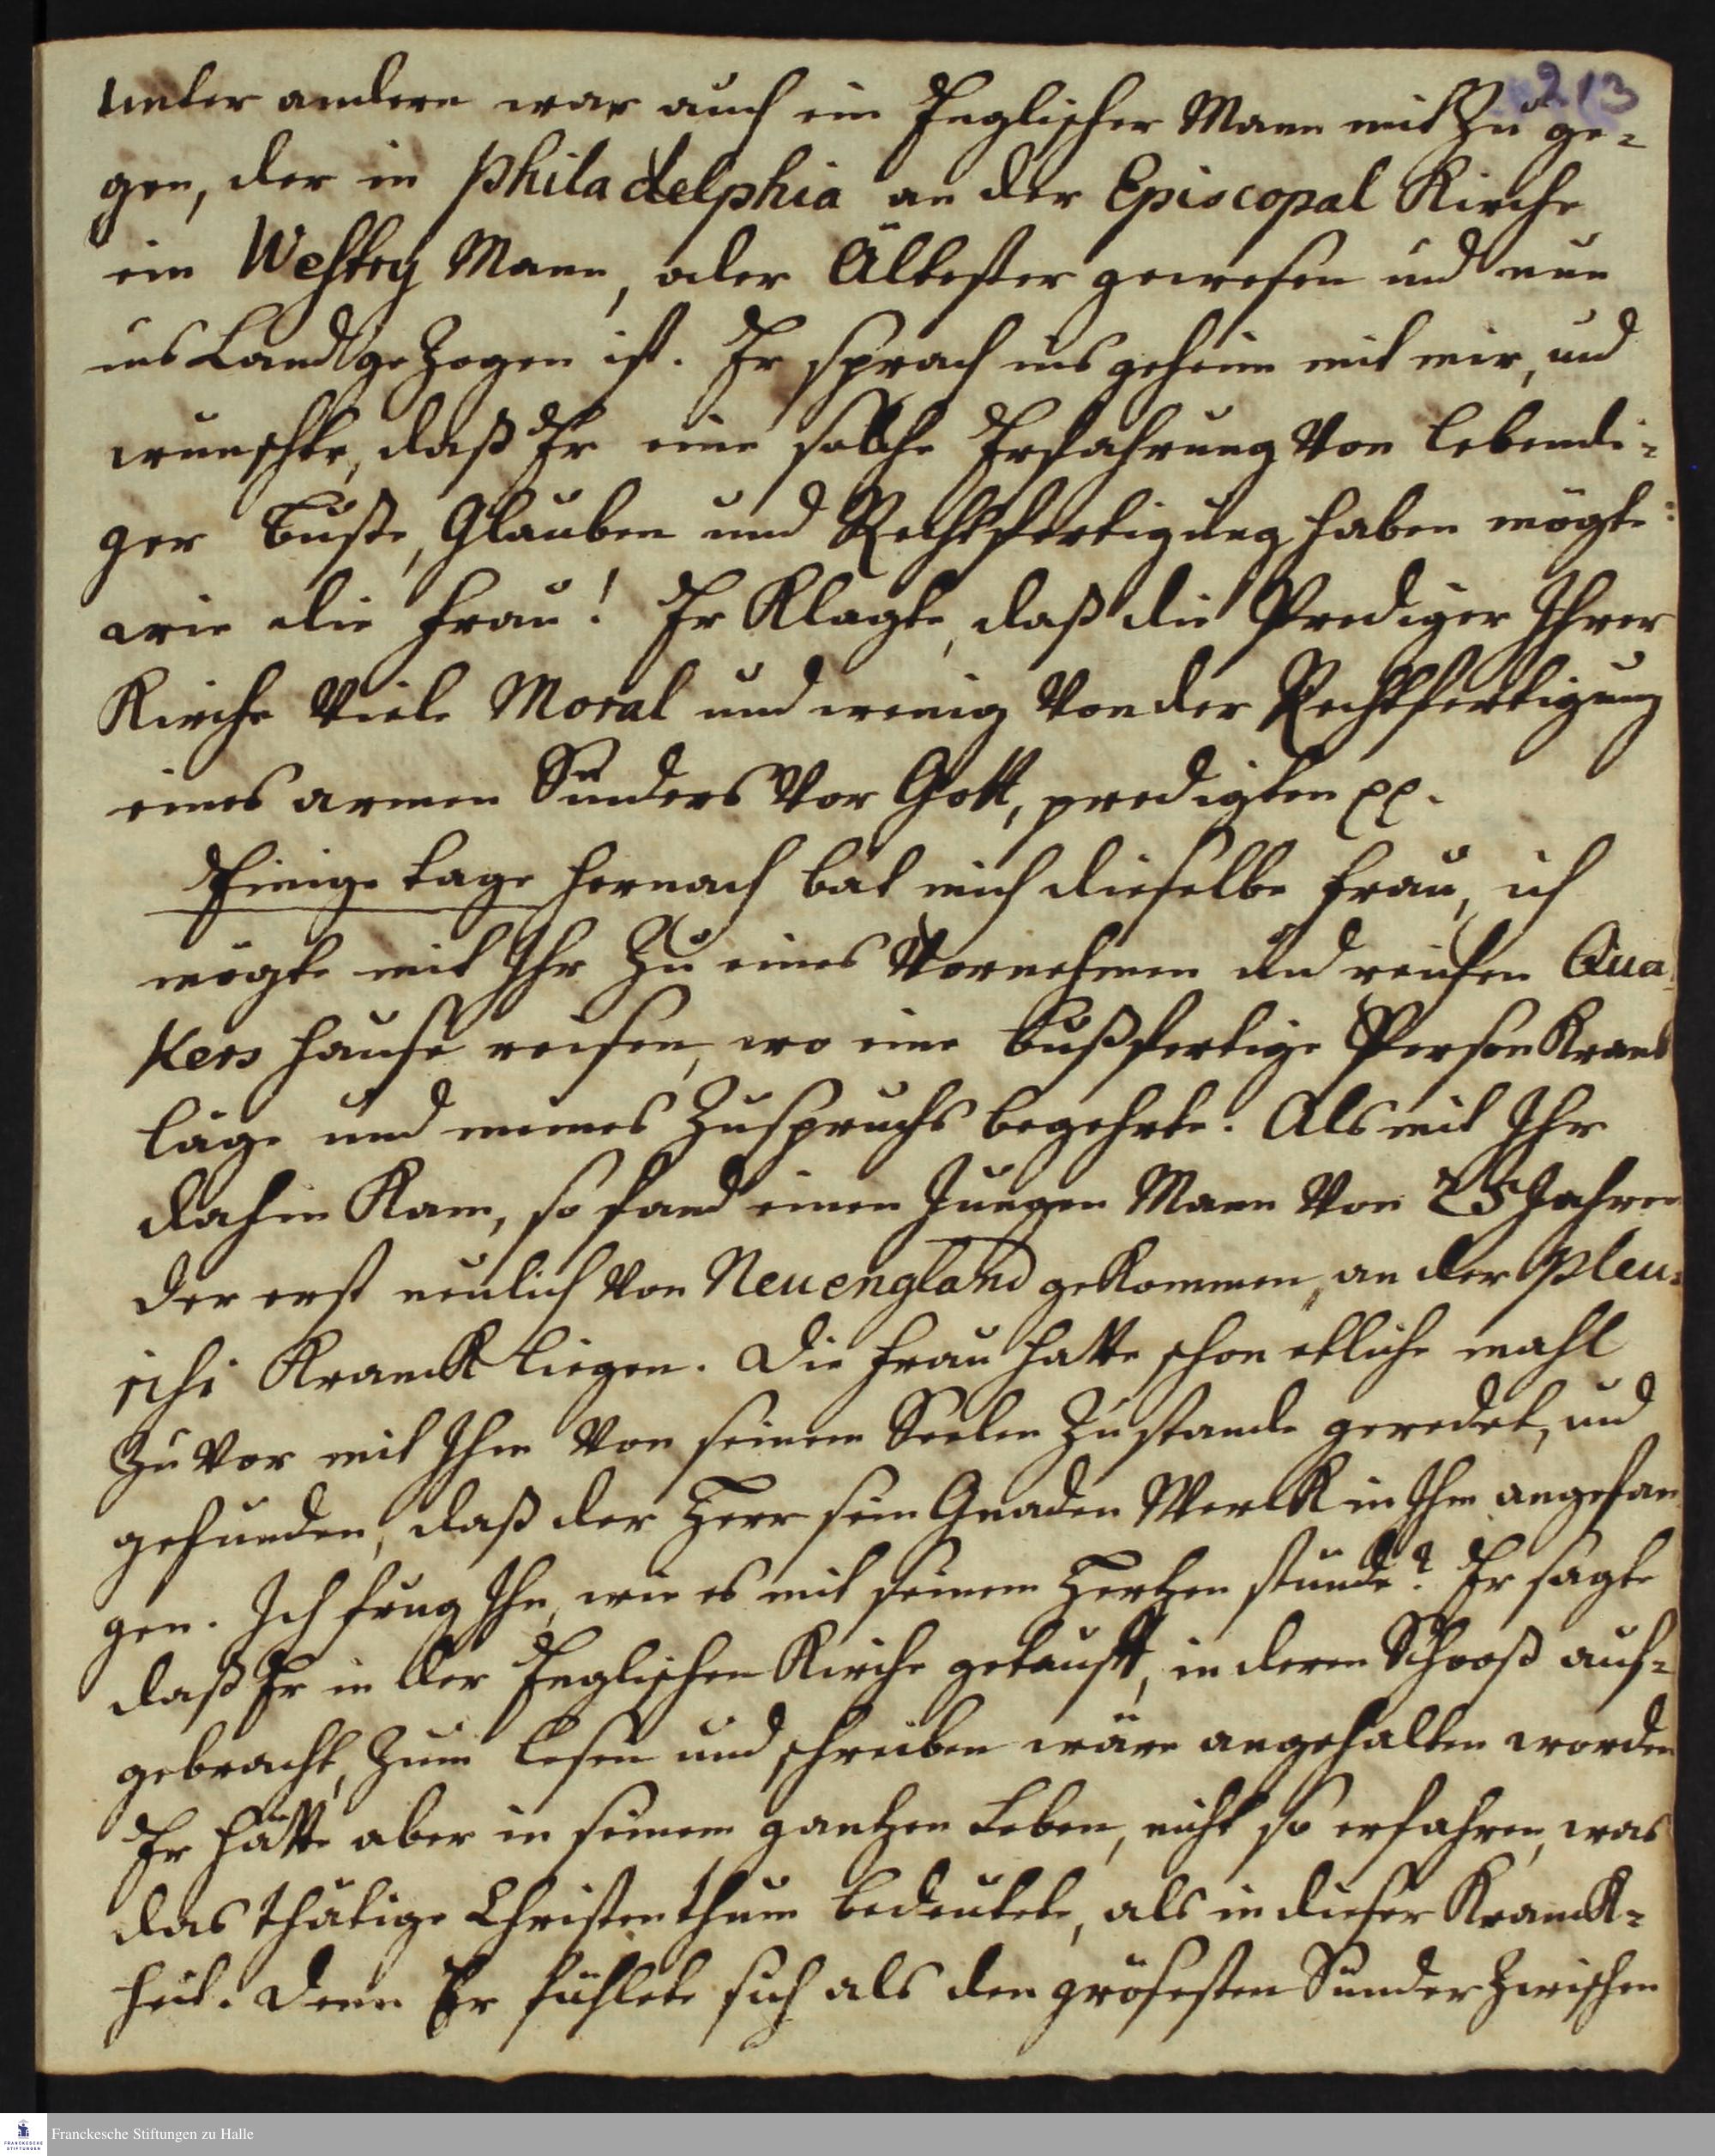 213
Unter andern war auch ein Englischer Mann mit Zu ge-
gen, der in Philadelphia an der Episcopal Kirche
ein Westry Mann, oder Ältester gewesen und nun
ins Land gezogen ist. Er sprach ins geheim mit mir, und
wunschte, daß Er eine solche Erfahrung von lebendi-
ger Buße, Glauben und Rechtfertigung haben mögte
wie die Frau! Er Klagte, daß die Prediger Ihrer
Kirche viele Moral und wenig von der Rechtfertigung
eines armen Sünders vor Gott, predigten pp.
Einige tage hernach bat mich dieselbe Frau, ich
mögte mit Ihr zu eines Vornehmen und reichen Qua-
kers Hause reisen, wo eine bußfertige Person Kranck
läge und meines Zuspruchs begehrte. Als mit Ihr
dahin Kam, so fand einen Jungen Mann von 25 Jahren
der erst neulich von Neuengland gekommen, an der Pleu-
risi Kranck liegen. Die Frau hatte schon etliche mahl
zuvor mit Ihm von seinem Seelen Zustande geredet, und
gefunden, daß der Herr sein Gnaden Werck in Ihm angefan
gen. Ich frug Ihn, wie es mit seinem Hertzen stunde? Er sagte
daß Er in der Englischen Kirche getaufft, in deren Schooß auf-
gebracht, zum lesen und schreiben wäre angehalten worden
Er hätte aber in seinem gantzen Leben, nicht so erfahren, was
das thätige Christenthum bedeutete, als in dieser Kranck-
heit. Denn Er fühlete sich als den grösesten Sünder zwischen
FRANCKESCHE STIFTUNGEN
Franckesche Stiftungen zu Halle